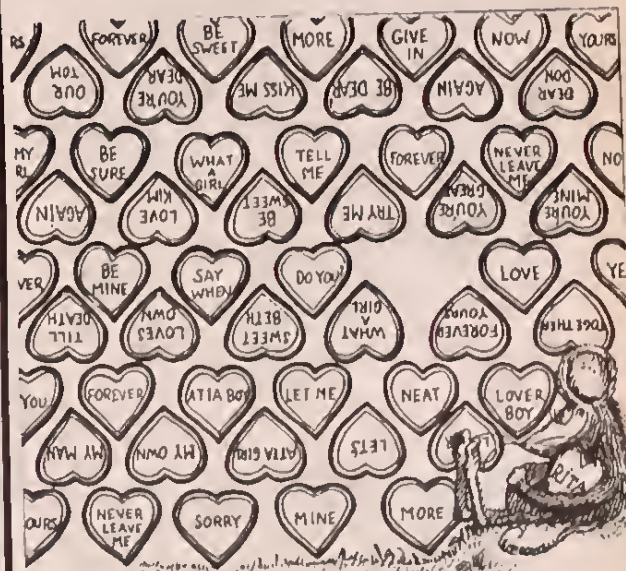 RS
FOREVER
BE
SWEET
MORE
GIVE
IN
NOW
YOURS
OUR
TOM
YOU'RE
DEAR
KISS ME
BE DEAR
AGAIN
DEAR
DON
MY
RL
BE
SURE
WHAT
A
GIRL
TELL
ME
FOREVER
NEVER
LEAVE
ME
NO
AGAIN
LOVE
KIM
BE
SWEET
TRY ME
YOU'RE
GREAT
YOU'RE
MINE
VER
BE
MINE
SAY
WHEN
DO YOU
LOVE
YE
TILL
DEATH
LOVES
OWN
SWEET
BETH
WHAT
GIRL
FOREVER
YOURS
TOGETHER
YOU
FOREVER
ATTA BOY
LET ME
NEAT
LOVER
BOY
MY MAN
MY OWN
ATTA GIRL
LETS
RITA
OURS
NEVER
LEAVE
ME
SORRY
MINE
MORE